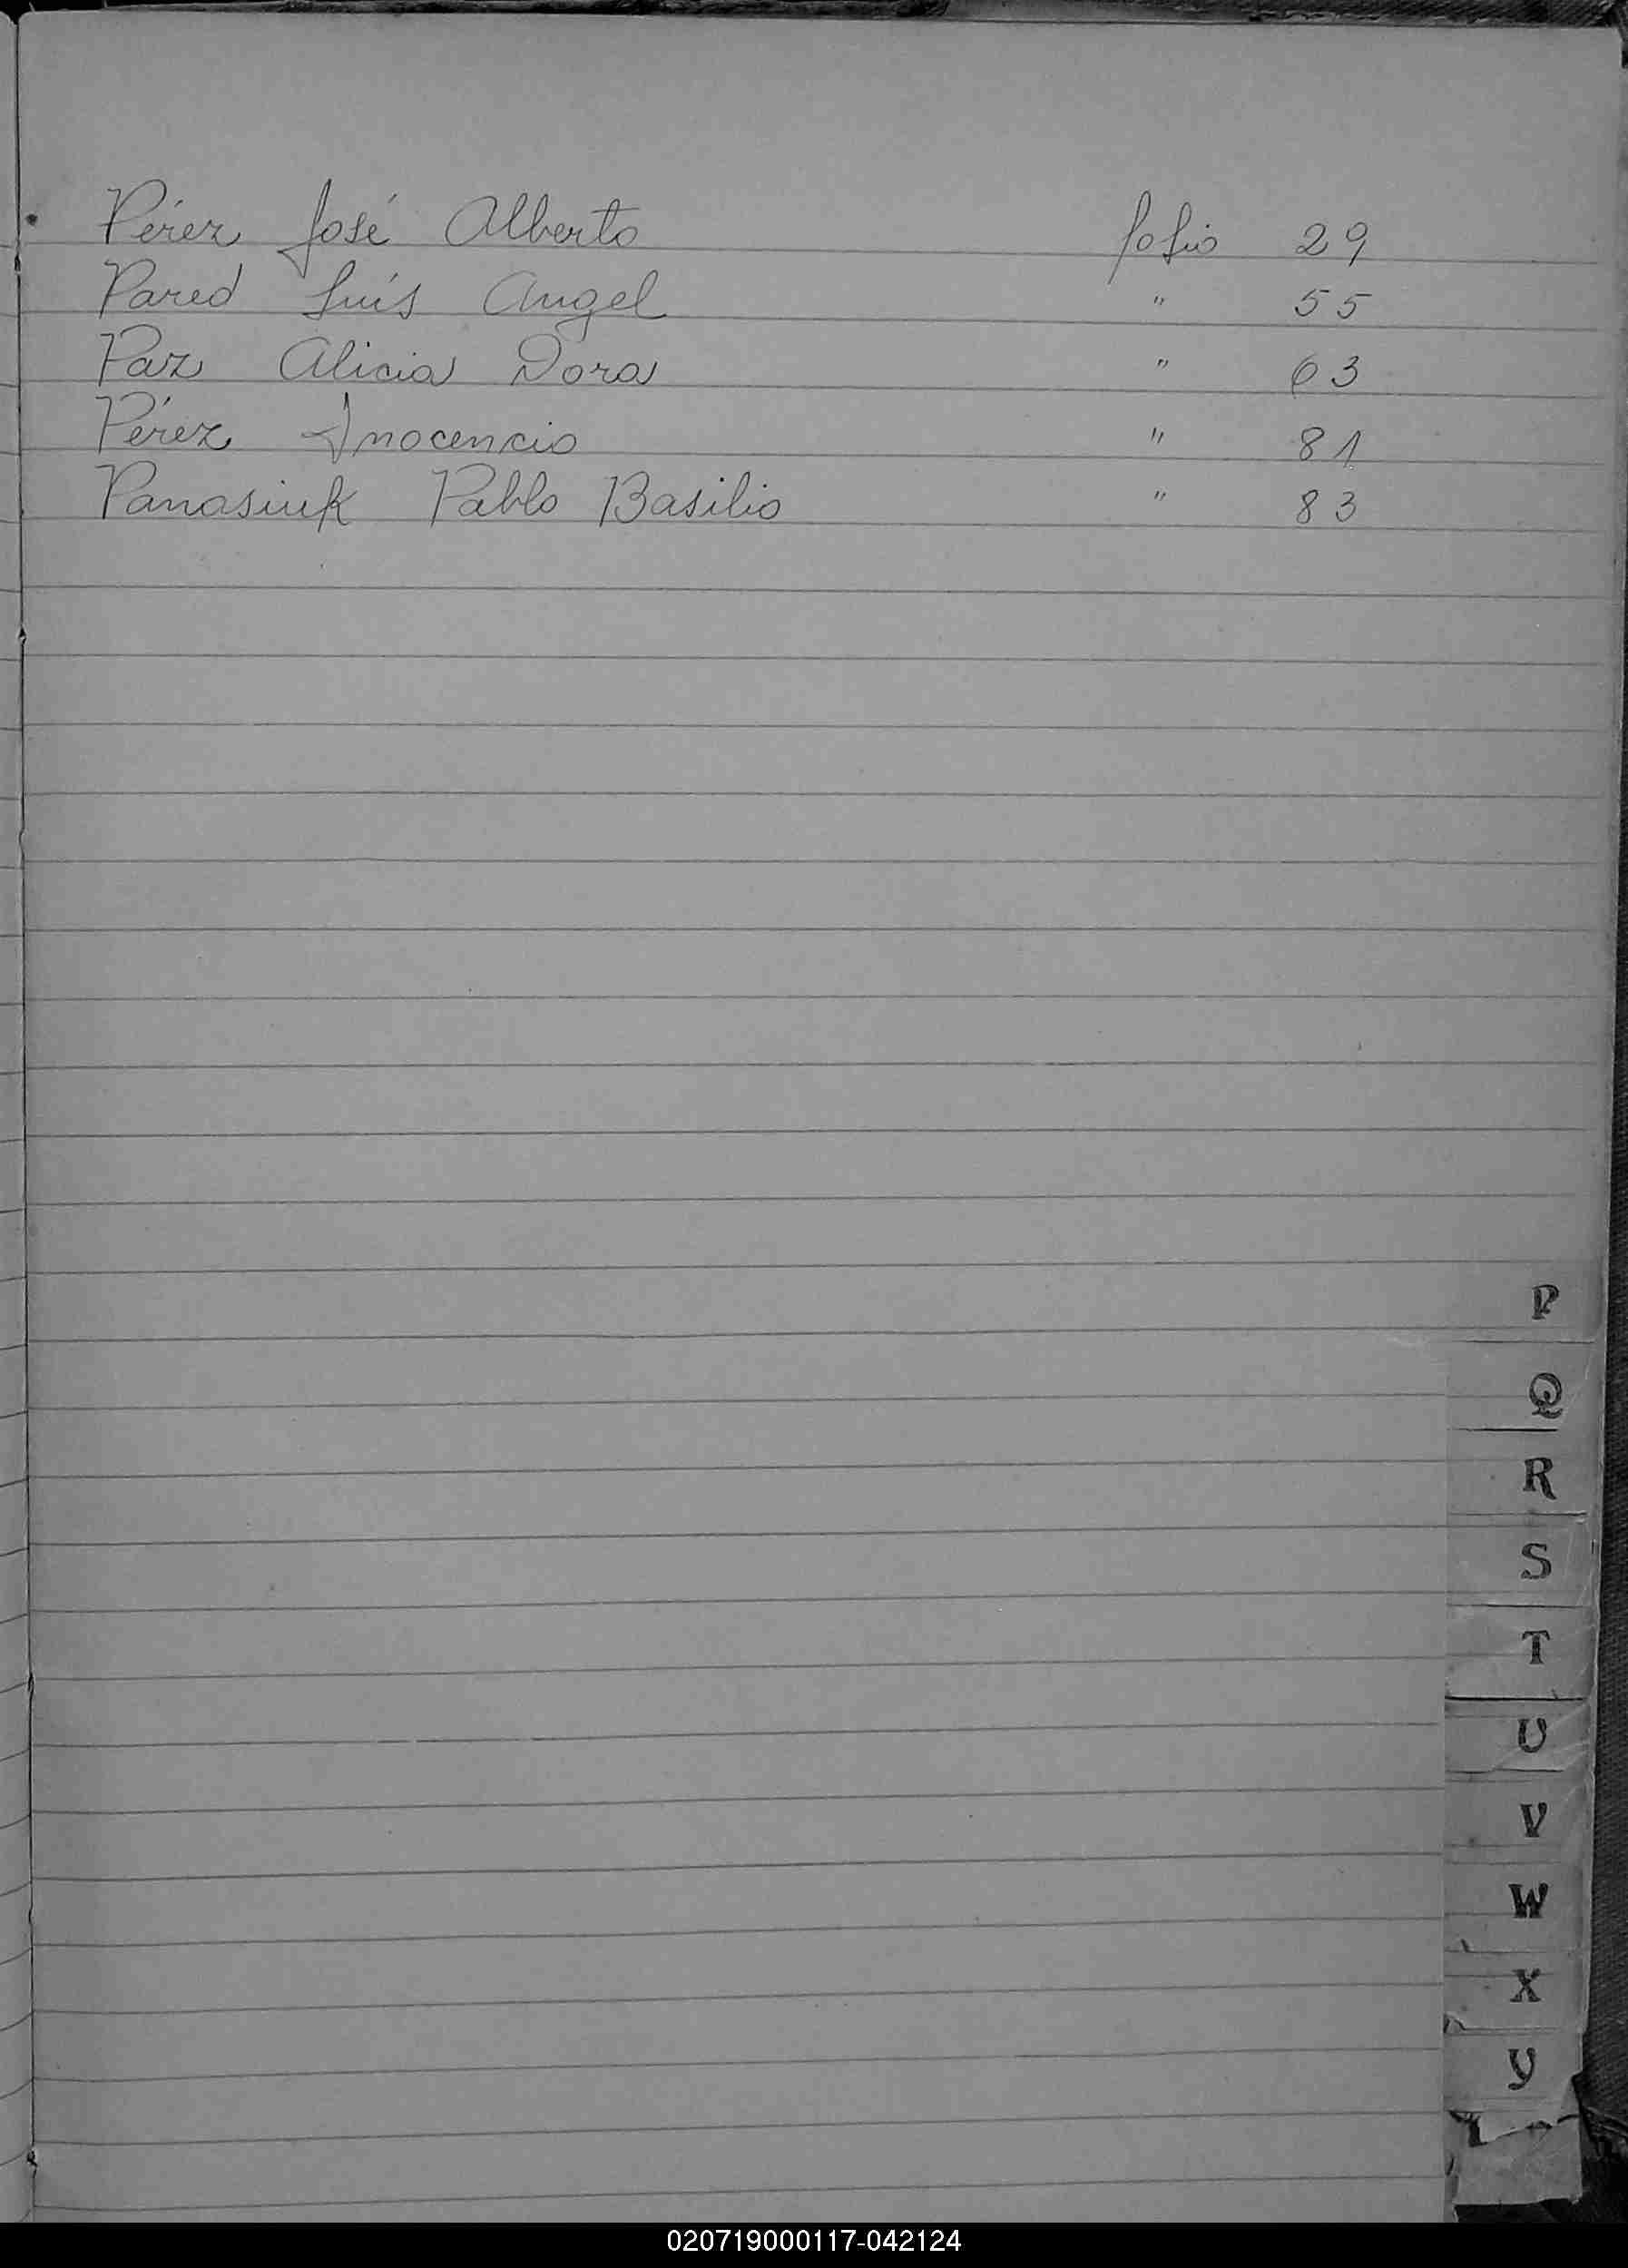 Pérez José Alberto folio 29
Pared Luís Angel " 55
Paz Alicia Dora " 63
Pérez Inocencio " 81
Panasiuk Pablo Basilio " 83
P
Q
R
S
T
U
V
W
X
Y
020719000117-042124